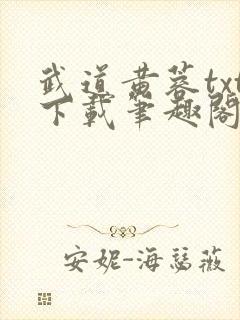 武道黄蓉txt
下载笔趣阁
安妮-海瑟薇